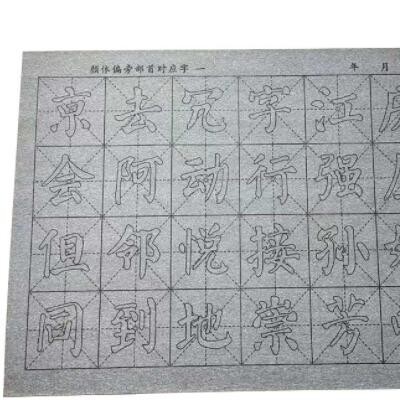 颜体偏旁部首对应字 一 年 月
京去冗字江
会阿动行强
但邻悦接孙
同到地崇芳